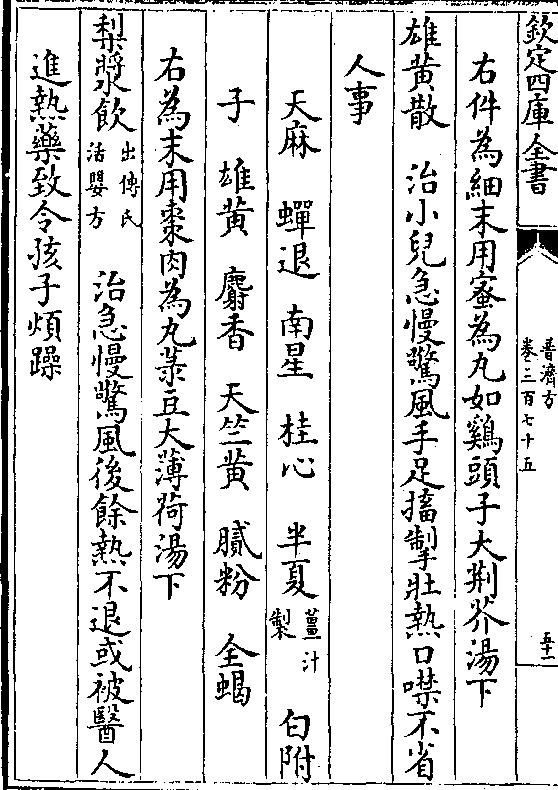 欽定四庫全書
普濟方
卷三百七十五
五十一
右件為細末用蜜為丸如雞頭子大荆芥湯下
雄黄散　治小兒急慢驚風手足搐掣壯熱口噤不省
人事
天麻　蟬退　南星　桂心　半夏薑汁製　白附
子　雄黄　麝香　天竺黄　膩粉　全蝎
右為末用棗肉為丸菉豆大薄荷湯下
梨漿飲出傅氏活嬰方　治急慢驚風後餘熱不退或被醫人
進熱藥致令孩子煩躁